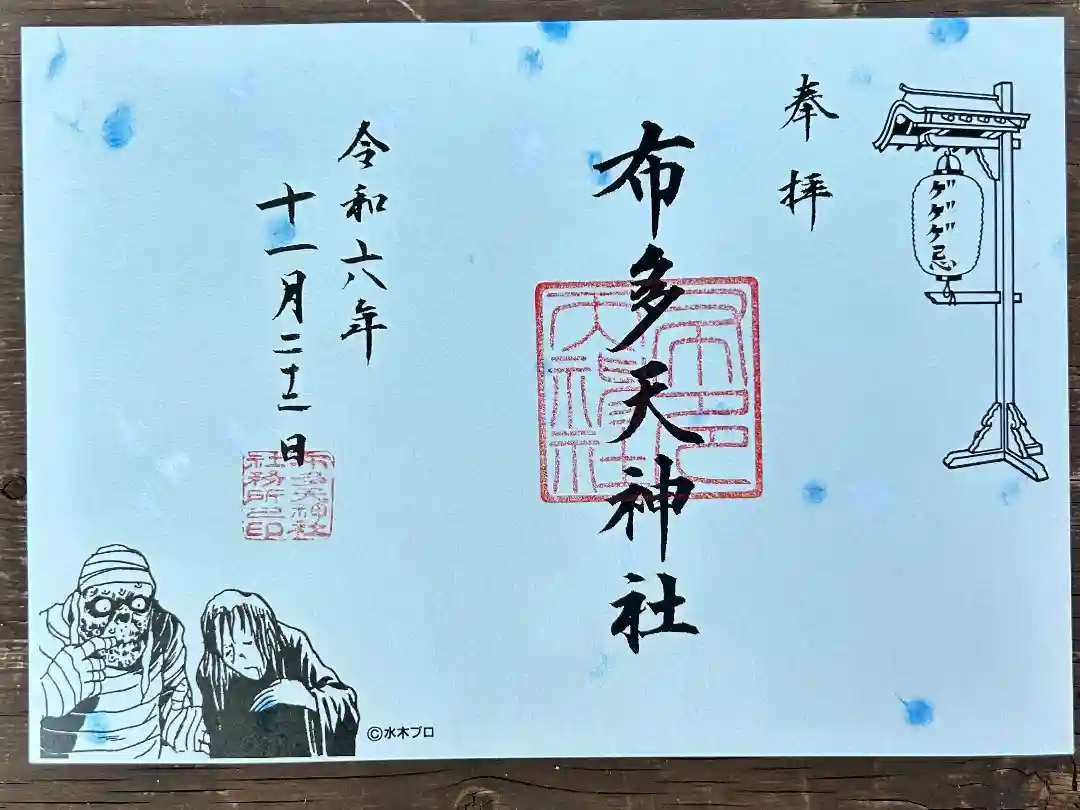 ゲゲゲ忌
奉拝
布多天神社
令和六年
十一月二十二日
布多天神社
社務所之印
©水木プロ